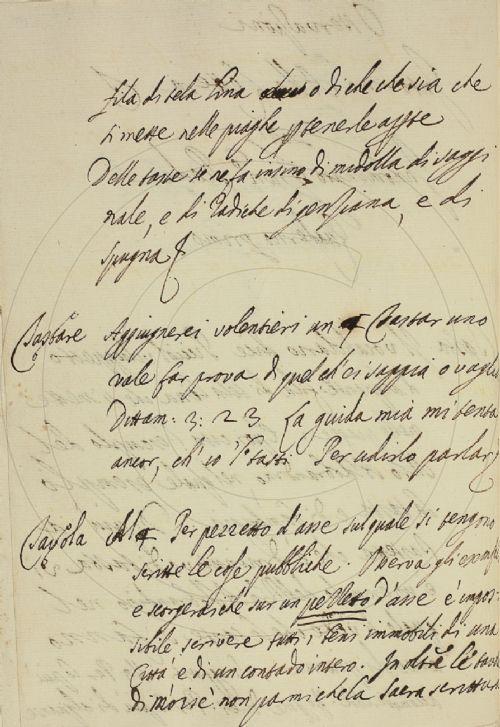 fila di tela lina o di che che sia che
si mette nelle piaghe p tenerle apte
Delle taste se ne fa insino di midolla di saggi
nale, e di Radiche di genziana, e di
spugna
Tastare Aggiugnerei volentieri un Tastar uno
vale far prova di quel ch' ei sappia o vaglia
Dittam: 3: 23 La guida mia mi tenta
ancor, ch' io 'l tasti Per udirlo parlar
Tavola Al Per pezzetto d'asse sul quale si tengono
scritte le cose pubbliche. Osserva gli esempi
e scorgerai che sur un pezzetto d'asse è impos
sibile scrivere tutti i beni immobili di una
Città e di un contado intero. Inoltre le tavole
di Moisè non parmi che la sacra scrittura